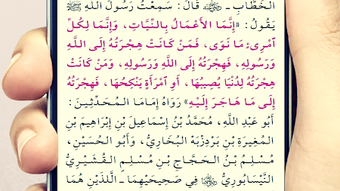 الْخَطَّابِ ـ ﵁ ـ قَالَ: سَمِعْتُ رَسُولَ اللَّهِ ﷺ
يَقُولُ: «إِنَّمَا الأَعْمَالُ بِالنِّيَّاتِ، وَإِنَّمَا لِكُلِّ
امْرِىءٍ مَا نَوَى، فَمَنْ كَانَتْ هِجْرَتُهُ إِلَى اللَّهِ
وَرَسُولِهِ، فَهِجْرَتُهُ إِلَى اللَّهِ وَرَسُولِهِ، وَمَنْ كَانَتْ
هِجْرَتُهُ لِدُنْيَا يُصِيبُهَا، أَوِ امْرَأَةٍ يَنْكِحُهَا، فَهِجْرَتُهُ
إِلَى مَا هَاجَرَ إِلَيْهِ» رَوَاهُ إِمَامَا الْمُحَدِّثِينَ:
أَبُو عَبْدِ اللَّهِ، مُحَمَّدُ بْنُ إِسْمَاعِيلَ بْنِ إِبْرَاهِيمَ بْنِ
الْمُغِيرَةِ بْنِ بَرْدِزْبَهْ الْبُخَارِيُّ، وَأَبُو الْحُسَيْنِ،
مُسْلِمُ بْنُ الْحَجَّاجِ بْنِ مُسْلِمٍ الْقُشَيْرِيُّ
النَّيْسَابُورِيُّ ﵄ فِي صَحِيحَيْهِمَا ـ اللَّذَيْنِ هُمَا